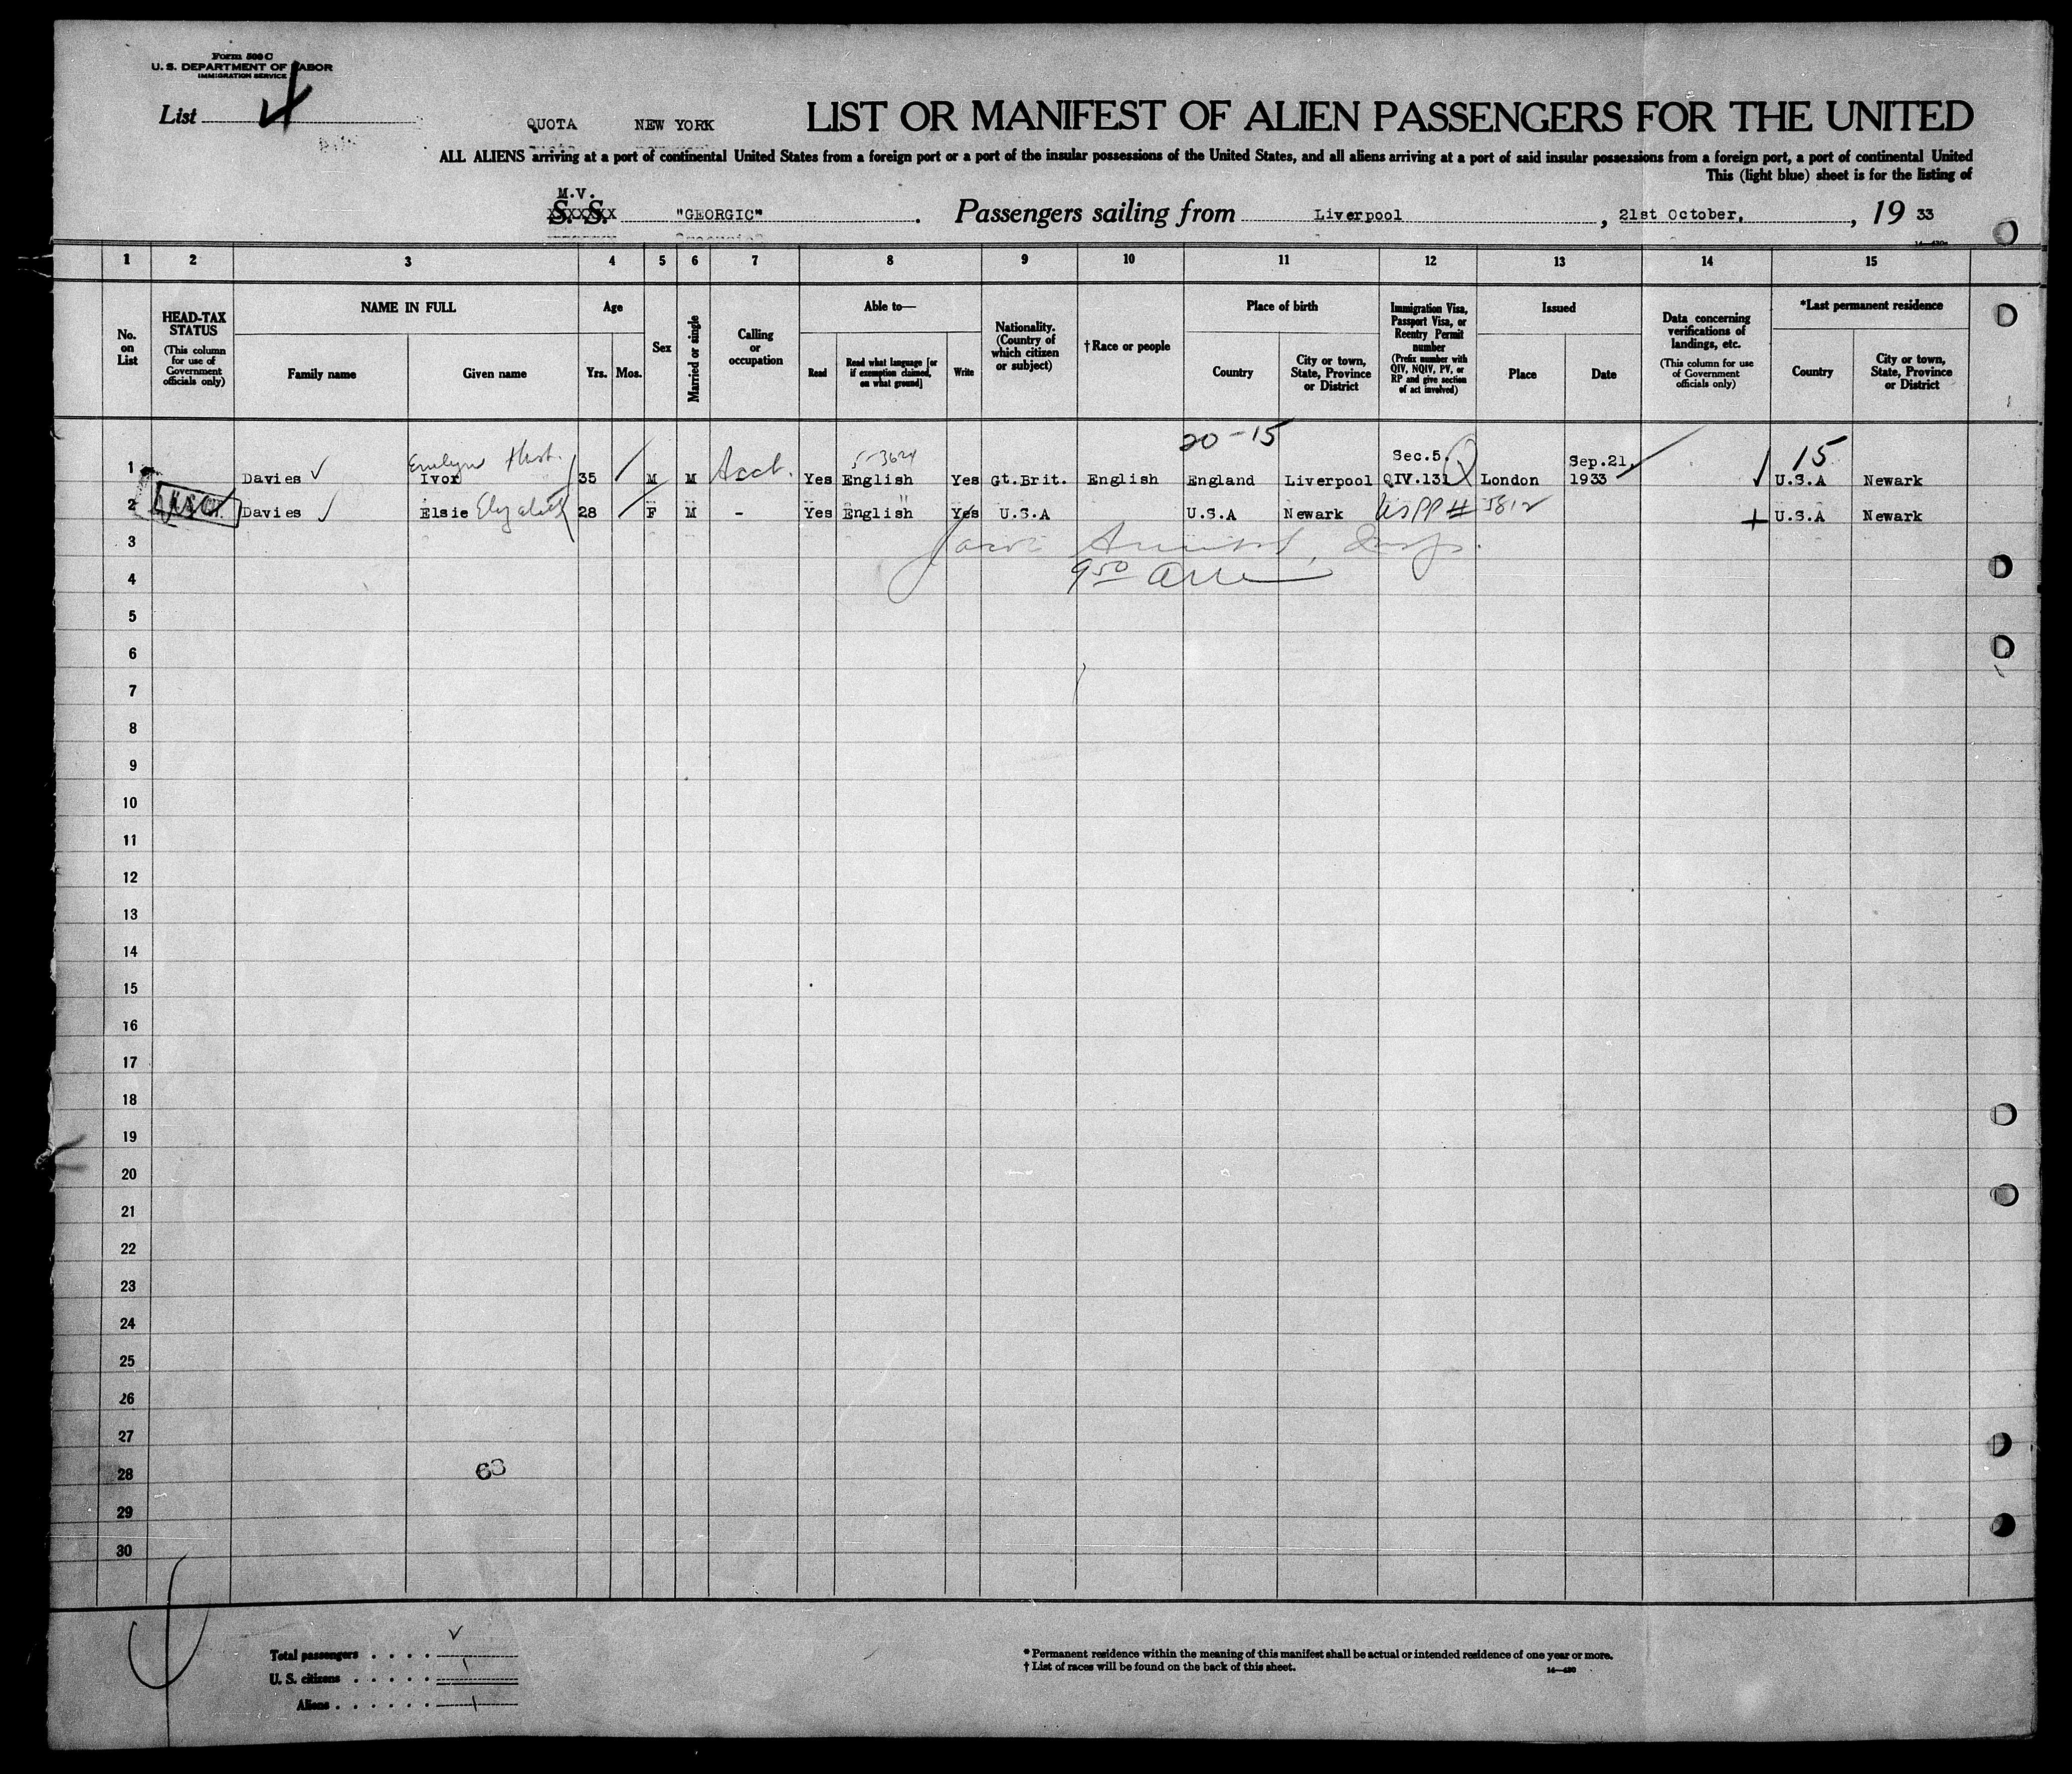 Form 500 C
U. S. DEPARTMENT OF LABOR
IMMIGRATION SERVICE
List
QUOTA NEW YORK
LIST OR MANIFEST OF ALIEN PASSENGERS FOR THE UNITED
ALL ALIENS arriving at a port of continental United States from a foreign port or a port of the insular possessions of the United States, and all aliens arriving at a port of said insular possessions from a foreign port, a port of continental United
This (light blue) sheet is for the listing of
M.V.
S. S. "GEORGIC". Passengers sailing from Liverpool, 21st October, , 19 33
1 2 3 4 5 6 7 8 9 10 11 12 13 14 15
No. on List
HEAD-TAX STATUS
(This column for use of Government officials only)
NAME IN FULL
Family name
Given name
Age
Yrs. Mos.
Sex
Married or single
Calling or occupation
Able to—
Read
Read what language [or if exemption claimed, on what ground]
Write
Nationality. (Country of which citizen or subject)
† Race or people
Place of birth
Country
City or town, State, Province or District
Immigration Visa, Passport Visa, or Reentry Permit number
(Prefix number with QIV, NQIV, PV, or RP and give section of act involved)
Issued
Place
Date
Data concerning verifications of landings, etc.
(This column for use of Government officials only)
*Last permanent residence
Country
City or town, State, Province or District
20-15
5-3624
Sec.5. Sep.21, 15
1 Davies Ivor 35 M M Acct. Yes English Yes Gt.Brit. English England Liverpool QIV.131 London 1933 U.S.A Newark
2 Davies Elsie Elizabeth 28 F M - Yes English Yes U.S.A U.S.A Newark USPP# 5812 U.S.A Newark
3
4
5
6
7
8
9
10
11
12
13
14
15
16
17
18
19
20
21
22
23
24
25
26
27
28 63
29
30
Total passengers . . . .
U. S. citizens . . . . . 1
Aliens . . . . . . 1
* Permanent residence within the meaning of this manifest shall be actual or intended residence of one year or more.
† List of races will be found on the back of this sheet.
14—430